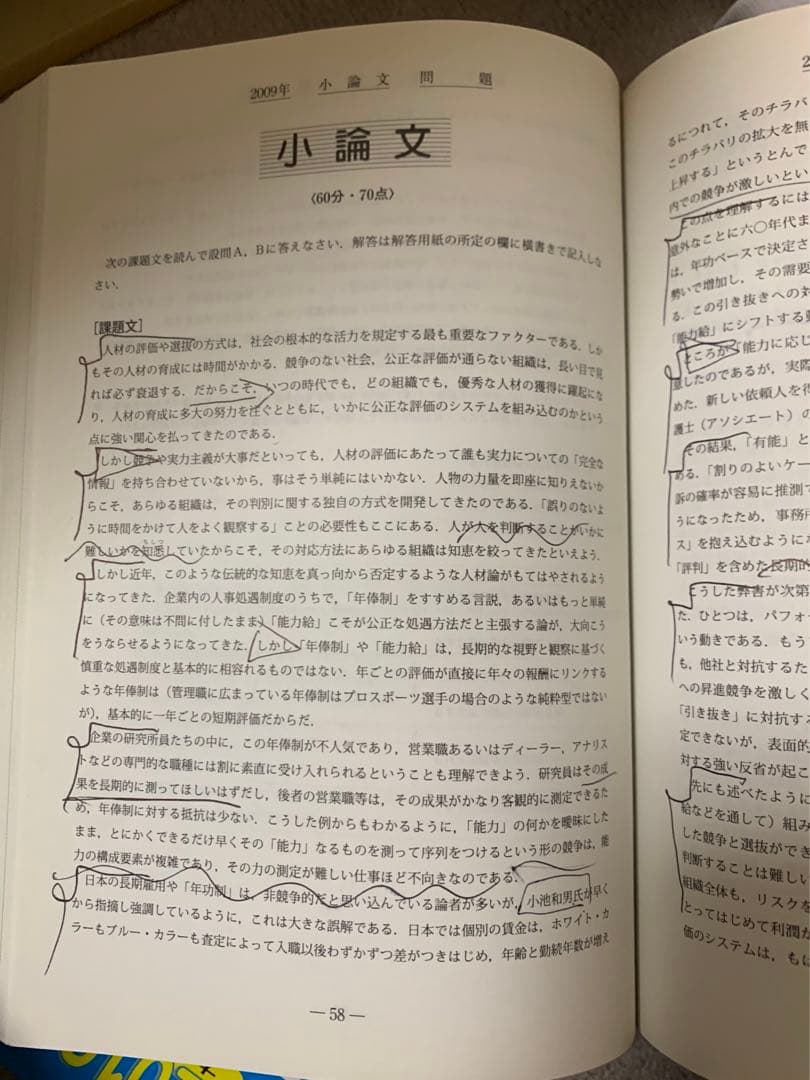 2009年 小論文 問題
小論文
〈60分・70点〉
次の課題文を読んで設問A，Bに答えなさい．解答は解答用紙の所定の欄に横書きで記入しな
さい．
[課題文]
人材の評価や選抜の方式は，社会の根本的な活力を規定する最も重要なファクターである．しか
もその人材の育成には時間がかかる．競争のない社会，公正な評価が通らない組織は，長い目で見
れば必ず衰退する．だからこそ，いつの時代でも，どの組織でも，優秀な人材の獲得に躍起にな
り，人材の育成に多大の努力を注ぐとともに，いかに公正な評価のシステムを組み込むのかという
点に強い関心を払ってきたのである．
しかし競争や実力主義が大事だといっても，人材の評価にあたって誰も実力についての「完全な
情報」を持ち合わせていないから，事はそう単純にはいかない．人物の力量を即座に知りえないか
らこそ，あらゆる組織は，その判別に関する独自の方式を開発してきたのである．「誤りのないよ
うに時間をかけて人をよく観察する」ことの必要性もここにある．人が人を判断することがいかに
難しいかを知悉していたからこそ，その対応方法にあらゆる組織は知恵を絞ってきたといえよう．
しかし近年，このような伝統的な知恵を真っ向から否定するような人材論がもてはやされるよう
になってきた．企業内の人事処遇制度のうちで，「年俸制」をすすめる言説，あるいはもっと単純
に（その意味は不問に付したまま）「能力給」こそが公正な処遇方法だと主張する論が，大向こう
をうならせるようになってきた．しかし「年俸制」や「能力給」は，長期的な視野と観察に基づく
慎重な処遇制度と基本的に相容れるものではない．年ごとの評価が直接に年々の報酬にリンクする
ような年俸制は（管理職に広まっている年俸制はプロスポーツ選手の場合のような純粋型ではない
が），基本的に一年ごとの短期評価だからだ．
企業の研究所員たちの中に，この年俸制が不人気であり，営業職あるいはディーラー，アナリス
トなどの専門的な職種には割に素直に受け入れられるということも理解できよう．研究員はその成
果を長期的に測ってほしいはずだし，後者の営業職等は，その成果がかなり客観的に測定できるた
め，年俸制に対する抵抗は少ない．こうした例からもわかるように，「能力」の何かを曖昧にした
まま，とにかくできるだけ早くその「能力」なるものを測って序列をつけるという形の競争は，能
力の構成要素が複雑であり，その力の測定が難しい仕事ほど不向きなのである．
日本の長期雇用や「年功制」は，非競争的だと思い込んでいる論者が多いが，小池和男氏が早く
から指摘し強調しているように，これは大きな誤解である．日本では個別の賃金は，ホワイト・カ
ラーもブルー・カラーも査定によって入職以後わずかずつ差がつきはじめ，年齢と勤続年数が増え
― 58 ―
るにつれて，そのチラバリ
このチラバリの拡大を無
上昇する」というとんで
内での競争が激しいとい
この点を理解するには
意外なことに六〇年代ま
は，年功ベースで決定さ
勢いで増加し，その需要
る．この引き抜きへの対
「能力給」にシフトする動
ところが「能力に応じ
したのであるが，実際
めた．新しい依頼人を得
護士（アソシエート）の
その結果，「有能」と
める．「割りのよいケー
訴の確率が容易に推測で
うになったため，事務所
ス」を抱え込むように
「評判」を含めた長期的
こうした弊害が次第
た．ひとつは，パフォー
いう動きである．もう
も，他社と対抗するた
への昇進競争を激しく
「引き抜き」に対抗す
定できないが，表面的
対する強い反省が起こ
先にも述べたように
給などを通して）組み
した競争と選抜ができ
判断することは難しい
組織全体も，リスクを
とってはじめて利潤が
価のシステムは，もは